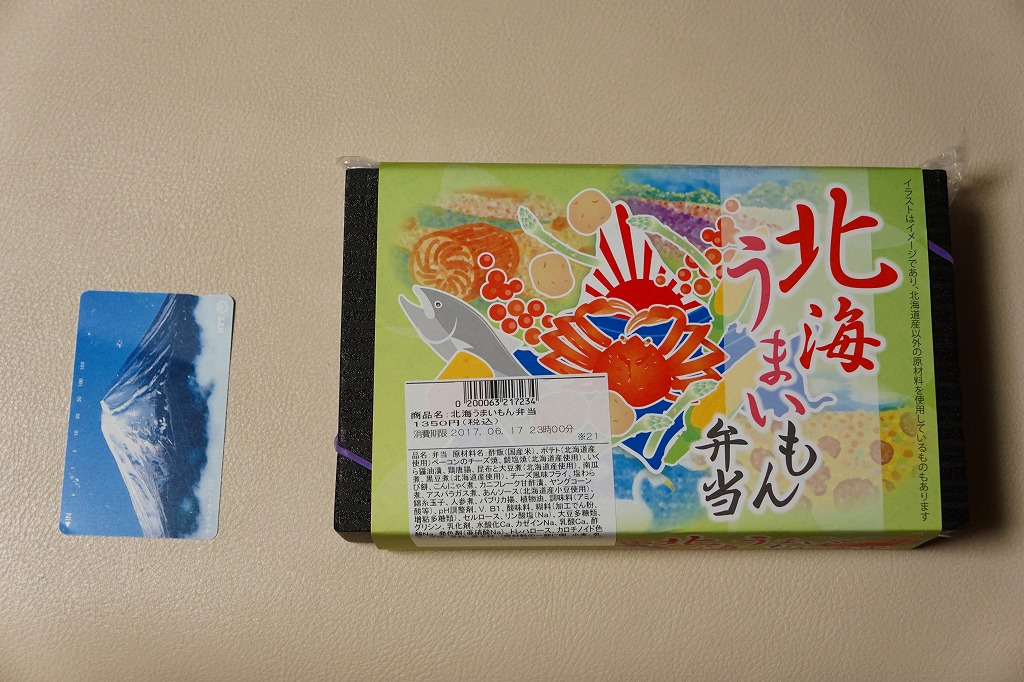 北海
うまいもん
弁当
イラストはイメージであり、北海道産以外の原材料を使用しているものもあります
0 200063 217234
商品名:北海うまいもん弁当
1350円(税込)
消費期限 2017.06.17 23時00分
※21
品名:弁当 原材料名:酢飯(国産米)、ポテト(北海道産
使用)ベーコンのチーズ焼、鮭塩焼(北海道産使用)、いく
ら醤油漬、鶏唐揚、昆布と大豆煮(北海道産使用)、南瓜
煮、黒豆煮(北海道産使用)、チーズ風味フライ、塩わら
び餅、こんにゃく煮、カニフレーク甘酢漬、ヤングコーン
煮、アスパラガス煮、あんソース(北海道産小豆使用)、
錦糸玉子、人参煮、パプリカ揚、植物油、調味料(アミノ
酸等)、pH調整剤、V.B1、酸味料、糊料(加工でん粉、
増粘多糖類)、セルロース、リン酸塩(Na)、大豆多糖類、
グリシン、乳化剤、水酸化Ca、カゼインNa、乳酸Ca、酢
酸Na、発色剤(亜硝酸Na)、トレハロース、カロチノイド色